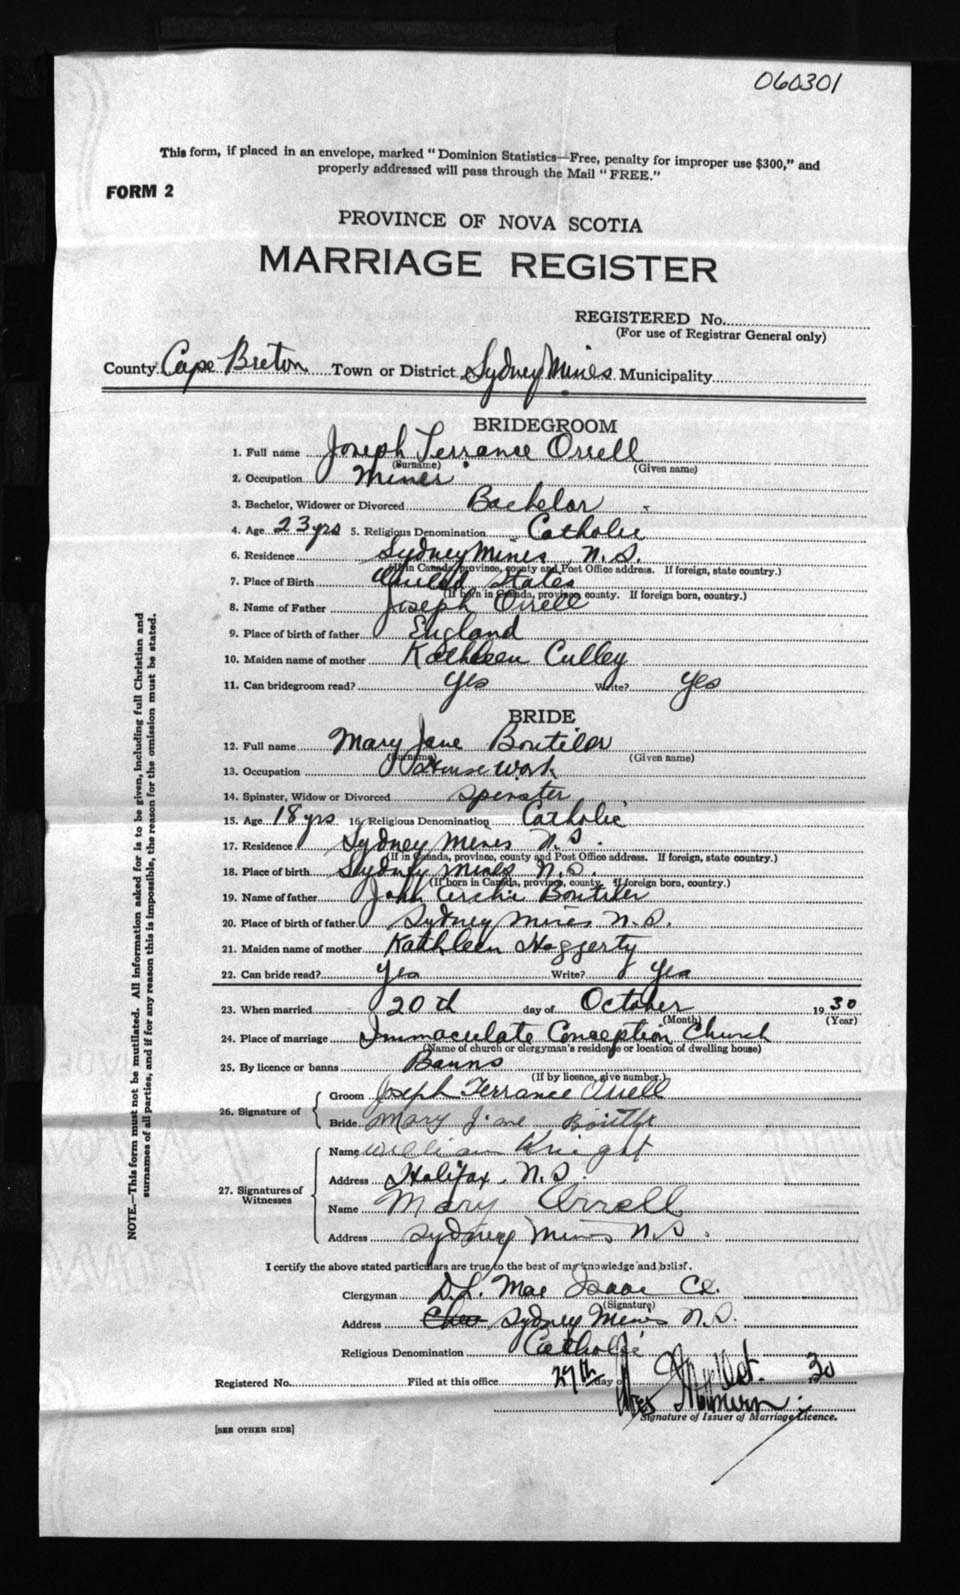 060301
This form, if placed in an envelope, marked "Dominion Statistics—Free, penalty for improper use $300," and
properly addressed will pass through the Mail "FREE."
FORM 2
PROVINCE OF NOVA SCOTIA
MARRIAGE REGISTER
REGISTERED No.
(For use of Registrar General only)
County Cape Breton Town or District Sydney Mines Municipality
BRIDEGROOM
1. Full name Joseph Terrance Orrell
(Surname) (Given name)
2. Occupation Miner
3. Bachelor, Widower or Divorced Bachelor
4. Age 23 yrs 5. Religious Denomination Catholic
6. Residence Sydney Mines N.S.
(If in Canada, province, county and Post Office address. If foreign, state country.)
7. Place of Birth United States
(If born in Canada, province, county. If foreign born, country.)
8. Name of Father Joseph Orrell
9. Place of birth of father England
10. Maiden name of mother Kathleen Culley
11. Can bridegroom read? Yes Write? Yes
BRIDE
12. Full name Mary Jane Boutilier
(Surname) (Given name)
13. Occupation House Work
14. Spinster, Widow or Divorced Spinster
15. Age 18 yrs 16. Religious Denomination Catholic
17. Residence Sydney Mines N.S.
(If in Canada, province, county and Post Office address. If foreign, state country.)
18. Place of birth Sydney Mines N.S.
(If born in Canada, province, county. If foreign born, country.)
19. Name of father John Archie Boutilier
20. Place of birth of father Sydney Mines N.S.
21. Maiden name of mother Kathleen Haggerty
22. Can bride read? Yes Write? Yes
23. When married 20th day of October 1930
(Month) (Year)
24. Place of marriage Immaculate Conception Church
(Name of church or clergyman's residence or location of dwelling house)
25. By licence or banns Banns
(If by licence, give number.)
26. Signature of
Groom Joseph Terrance Orrell
Bride Mary Jane
27. Signatures of Witnesses
Name William Wright
Address Halifax, N.S.
Name Mary Orrell
Address Sydney Mines N.S.
I certify the above stated particulars are true to the best of my knowledge and belief.
Clergyman D.L. Mac Isaac
(Signature)
Address Sydney Mines N.S.
Religious Denomination Catholic
Registered No. Filed at this office 27th day of Oct. 30
Signature of Issuer of Marriage Licence.
[SEE OTHER SIDE]
NOTE.—This form must not be mutilated. All information asked for is to be given, including full Christian and
surnames of all parties, and if for any reason this is impossible, the reason for the omission must be stated.